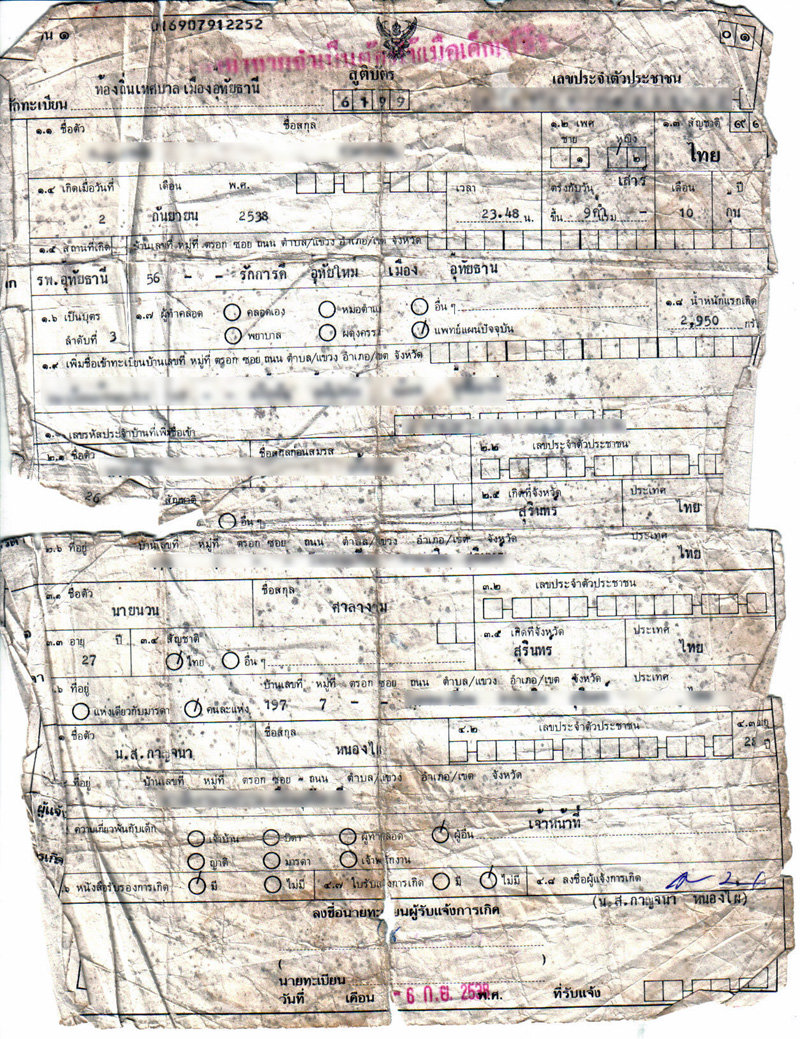 016907912252
น ๑
๐ ๑
สูติบัตร
ท้องถิ่นเทศบาล เมืองอุทัยธานี
เลขประจำตัวประชาชน
สำนักทะเบียน
6 1 9 9
๑.๑ ชื่อตัว ชื่อสกุล ๑.๒ เพศ ๑.๓ สัญชาติ ๙ ๑
ชาย หญิง
๑ ๒
ไทย
๑.๔ เกิดเมื่อวันที่ เดือน พ.ศ. เวลา ตรงกับวัน เสาร์ เดือน ปี
2 กันยายน 2538 23.48 น. ขึ้น 9 ค่ำ แรม - 10 กุน
๑.๕ สถานที่เกิด บ้านเลขที่ หมู่ที่ ตรอก ซอย ถนน ตำบล/แขวง อำเภอ/เขต จังหวัด
รพ.อุทัยธานี 56 - - รักการดี อุทัยใหม่ เมือง อุทัยธาน
๑.๖ เป็นบุตร ๑.๗ ผู้ทำคลอด คลอดเอง หมอตำแย อื่น ๆ ๑.๘ น้ำหนักแรกเกิด
ลำดับที่ 3 พยาบาล ผดุงครรภ์ แพทย์แผนปัจจุบัน 2,950 กรัม
๑.๙ เพิ่มชื่อเข้าทะเบียนบ้านเลขที่ หมู่ที่ ตรอก ซอย ถนน ตำบล/แขวง อำเภอ/เขต จังหวัด
เลขรหัสประจำบ้านที่เพิ่มชื่อเข้า
๒.๑ ชื่อตัว ชื่อสกุลก่อนสมรส ๒.๒ เลขประจำตัวประชาชน
26 สัญชาติ ๒.๕ เกิดที่จังหวัด ประเทศ
อื่น ๆ สุรินทร์ ไทย
๒.๖ ที่อยู่ บ้านเลขที่ หมู่ที่ ตรอก ซอย ถนน ตำบล/แขวง อำเภอ/เขต จังหวัด
ไทย
๓.๑ ชื่อตัว ชื่อสกุล ๓.๒ เลขประจำตัวประชาชน
นายนวน ศาลางาม
๓.๓ อายุ ปี ๓.๔ สัญชาติ ๓.๕ เกิดที่จังหวัด ประเทศ
27 ไทย อื่น ๆ สุรินทร์ ไทย
๖ ที่อยู่ บ้านเลขที่ หมู่ที่ ตรอก ซอย ถนน ตำบล/แขวง อำเภอ/เขต จังหวัด ประเทศ
แห่งเดียวกับมารดา คนละแห่ง 197 7 - -
๑ ชื่อตัว ชื่อสกุล ๔.๒ เลขประจำตัวประชาชน ๔.๓ อายุ
น.ส.กาญจนา หนองไผ่ ปี
ที่อยู่ บ้านเลขที่ หมู่ที่ ตรอก ซอย ถนน ตำบล/แขวง อำเภอ/เขต จังหวัด
ผู้แจ้ง
ความเกี่ยวพันกับเด็ก เจ้าบ้าน บิดา ผู้ทำคลอด ผู้อื่น เจ้าหน้าที่
ญาติ มารดา เจ้าพนักงาน
๖ หนังสือรับรองการเกิด มี ไม่มี ๔.๗ ใบรับแจ้งการเกิด มี ไม่มี ๔.๘ ลงชื่อผู้แจ้งการเกิด
(น.ส.กาญจนา หนองไผ่)
ลงชื่อนายทะเบียนผู้รับแจ้งการเกิด
( )
นายทะเบียน
วันที่ เดือน - 6 ก.ย. 2538 พ.ศ. ที่รับแจ้ง